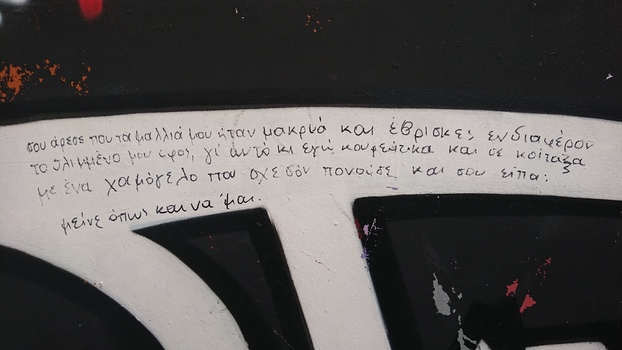 σου άρεσε που τα μαλλιά μου ήταν μακρυά και έβρισκες ενδιαφέρον
το θλιμμένο μου ύφος, γι αυτό κι εγώ κουρεύτηκα και σε κοίταξα
με ένα χαμόγελο που σχεδόν πονούσε και σου είπα:
μείνε όπως και να 'μαι.